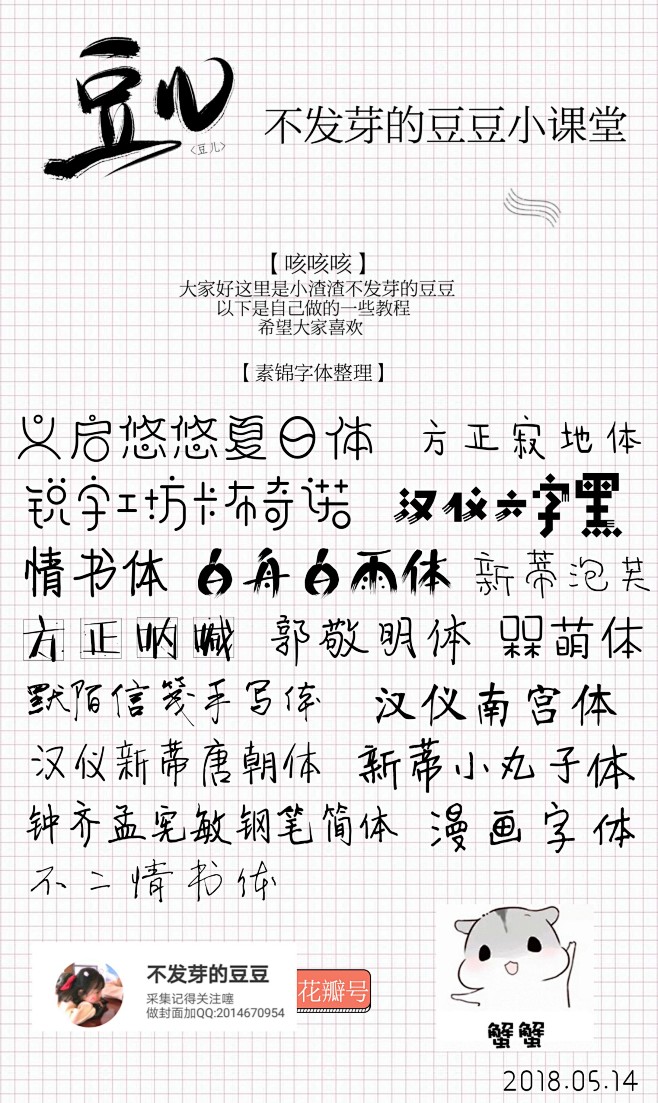 豆儿
〈豆儿〉
不发芽的豆豆小课堂
【咳咳咳】
大家好这里是小渣渣不发芽的豆豆
以下是自己做的一些教程
希望大家喜欢
【素锦字体整理】
义启悠悠夏日体 方正寂地体
锐字工坊卡布奇诺 汉仪六字黑
情书体 白舟白雨体 新蒂泡芙
方正呐喊 郭敬明体 槑萌体
默陌信笺手写体 汉仪南宫体
汉仪新蒂唐朝体 新蒂小丸子体
钟齐孟宪敏钢笔简体 漫画字体
不二情书体
不发芽的豆豆 花瓣号
采集记得关注噻
做封面加QQ:2014670954
蟹蟹
2018.05.14